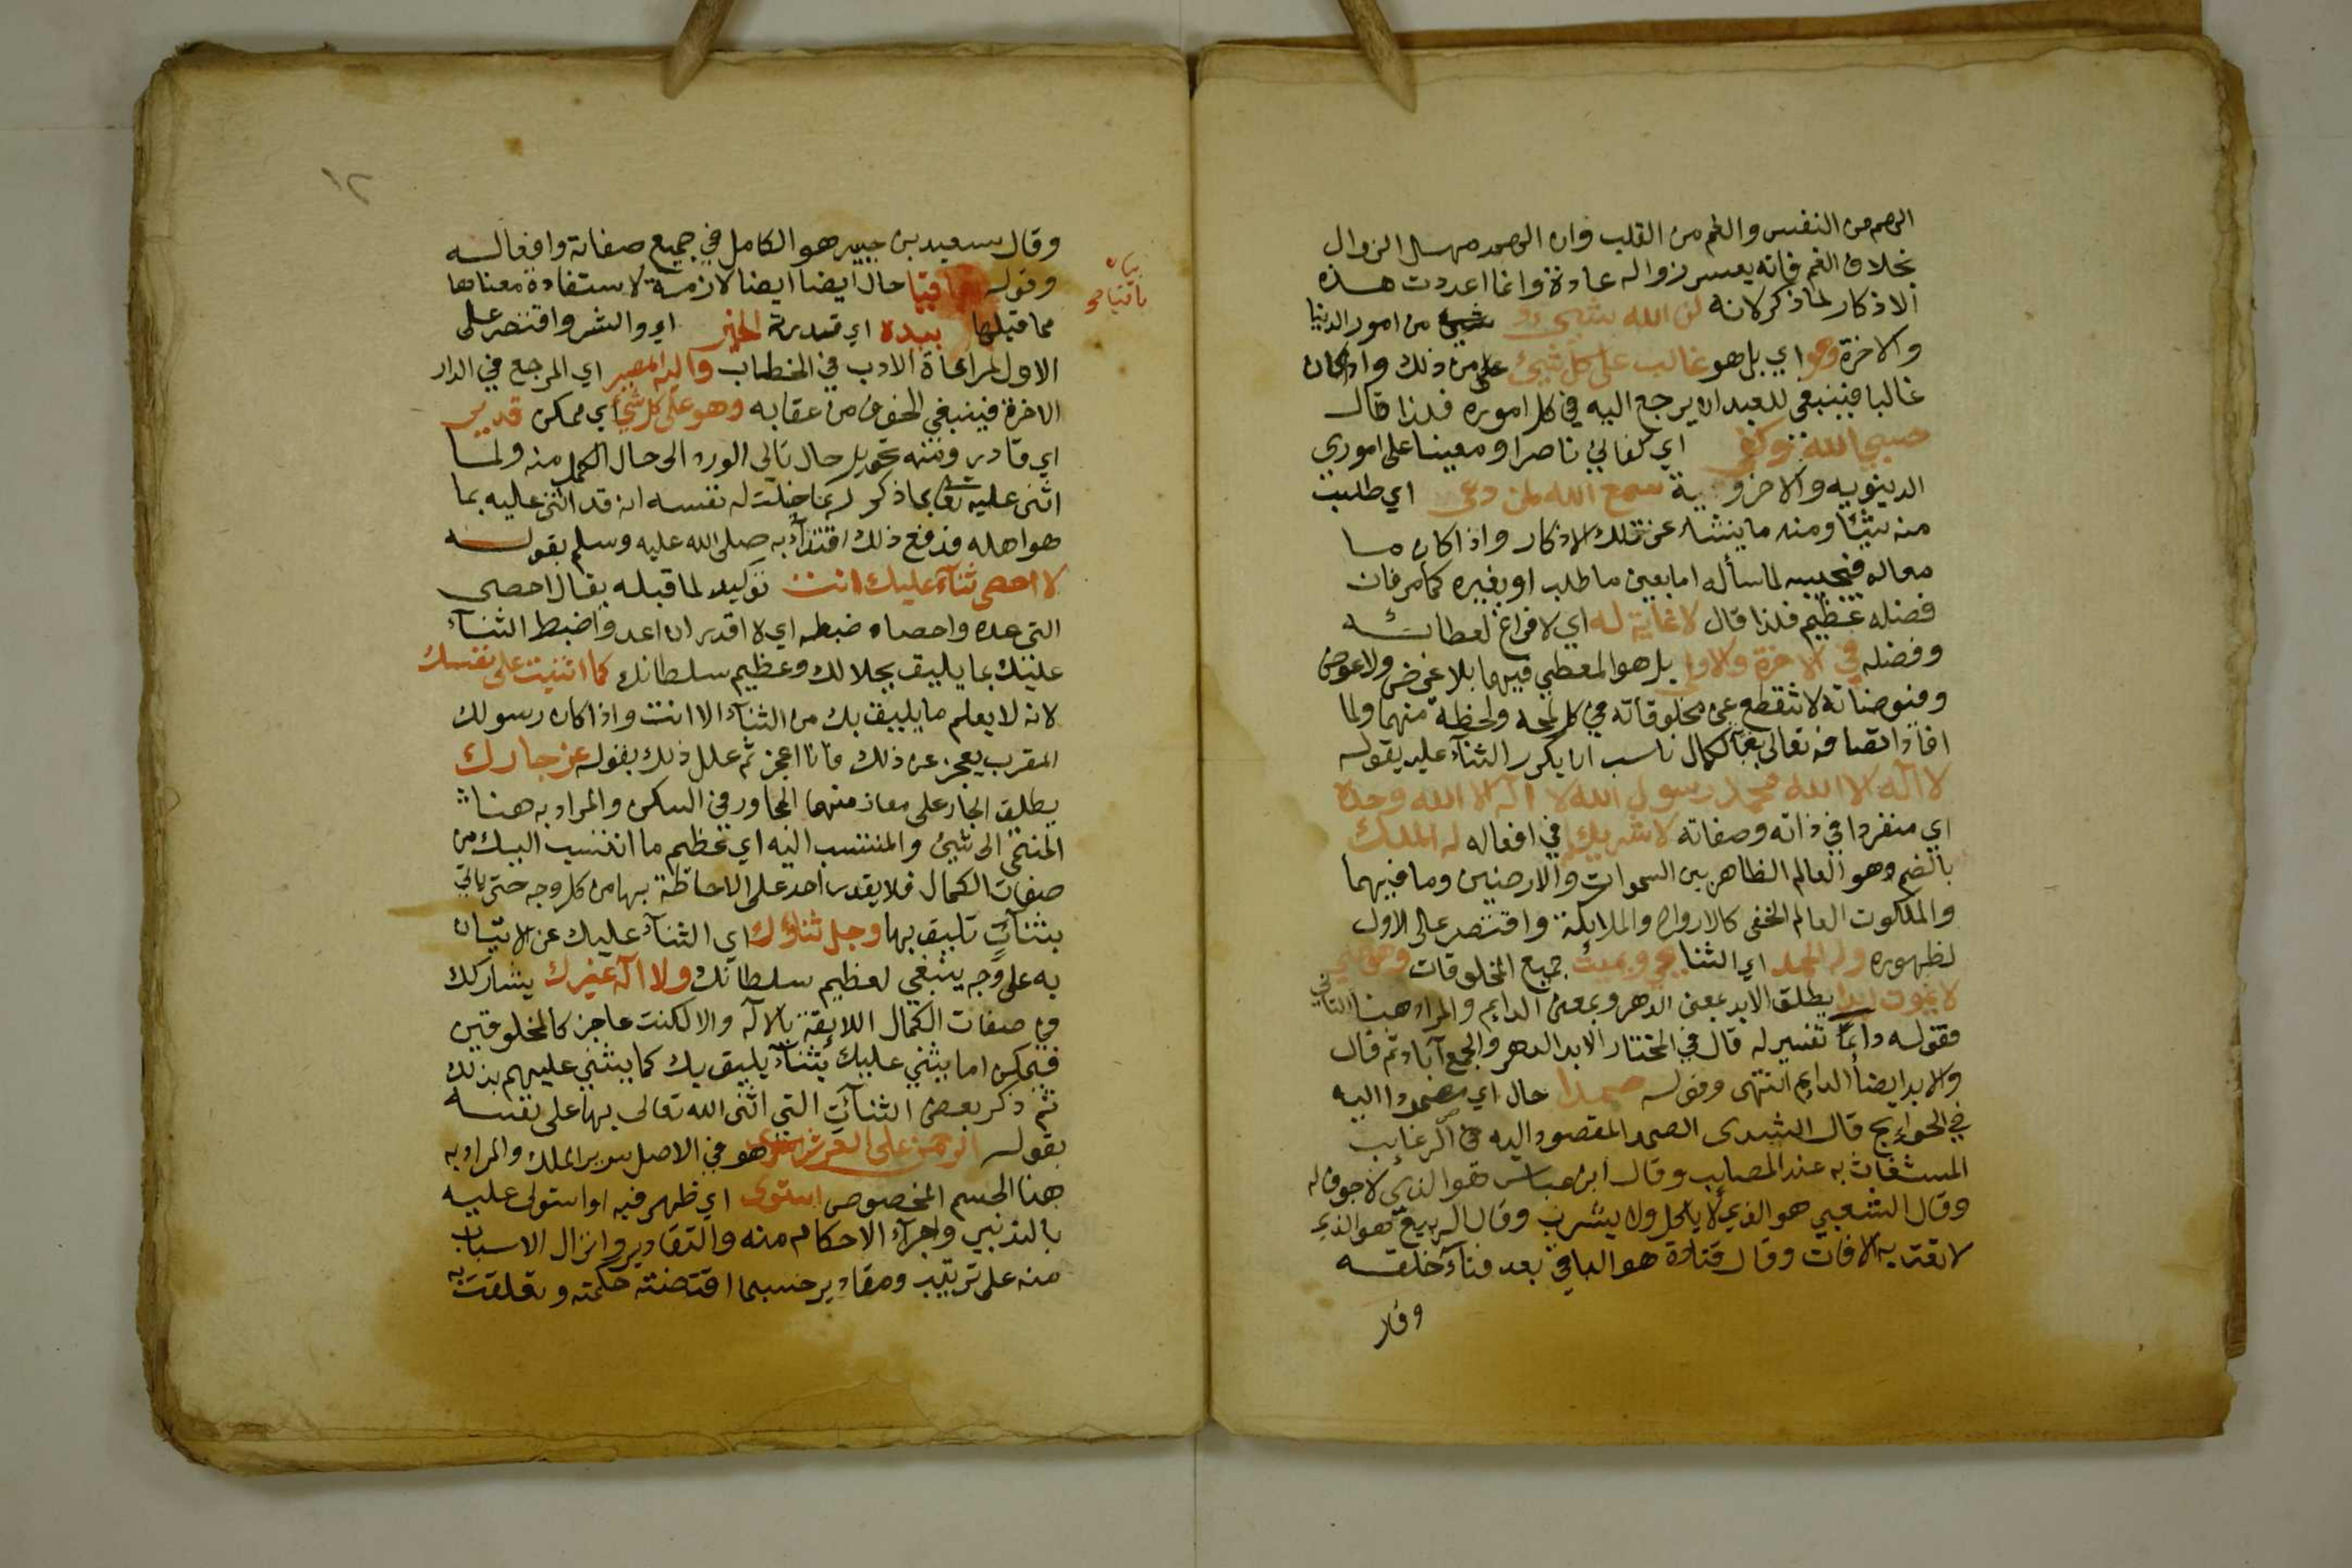 الهم من النفس والغم من القلب وان الهم سهل الزوال
بخلاف الغم فانه يعسر زواله عادة وانما اعددت هذه
الاذكار لما ذكر لانه لن الله شيئ من امور الدنيا
والاخرة وهو اي بل هو غالب على كل شيئ على من ذلك واذا كان
غالبا فينبغي للعبد ان يرجع اليه في كل اموره فلذا قال
حسبي الله وكفى اي كفاني ناصرا ومعينا على اموري
الدينويه والاخروية سمع الله لمن دعى اي طلبت
منه شيئا ومنه ما ينشاء عن تلك الاذكار واذا كان
فيجيبه لما سأله اما بعين ما طلب او بغيره كما مر فان
فضله عظيم فلذا قال لا غاية له اي لا فراغ لعطائه
وفضله في الاخرة والاولى بل هو المعطي فيهما بلا غرض ولا عوض
وفيوضاته لا تنقطع عن مخلوقاته في كل لمحه ولحظة منهما ولما
افاد اتصافه تعالى بالكمال ناسب ان يكرر الثناء عليه بقوله
لا اله الا الله محمد رسول الله لا اله الا الله وحده
اي منفردا في ذاته وصفاته لا شريك له في افعاله له الملك
بالضم وهو العالم الظاهر بين السموات والارضين وما فيهما
والملكوت العالم الخفى كالارواح والملائكة واقتصر على الاول
لظهوره وله الحمد اي الثنا يحي ويميت جميع المخلوقات وهو حي
لا يموت ابدا يطلق الابد بمعنى الدهر وبمعنى الدايم والمراد هنا الثاني
فقوله دائما تفسير له قال في المختار الابد الدهر والجمع آباد ثم قال
والابد ايضا الدايم انتهى وقوله صمدا حال اي مصمودا اليه
في الحوايج قال السدى الصمد المقصود اليه في الرغايب
المستغاث به عند المصايب وقال ابن عباس هو الذي لا جوف له
وقال الشعبي هو الذي لا ياكل ولا يشرب وقال الربيع هو الذي
لا تعتريه الافات وقال قتادة هو الباقي بعد فناء خلقه
وقال
١٢
وقال سعيد بن جبير هو الكامل في جميع صفاته وافعاله
وقوله باقيا حال ايضا ايضا لازمة لاستفادة معناها
بيان
باقيا
مما قبلها بيده اي قدرته الخير اي والشر واقتصر على
الاول لمراعاة الادب في الخطاب واليه المصير اي المرجع في الدار
الاخرة فينبغي الخوف من عقابه وهو على كل شيئ اي ممكن قدير
اي قادر ومنه تحويل حال تالي الورد الى حال اكمل منه ولما
اثنى عليه تعالى بما ذكر ربما خيلت له نفسه انه قد اثنى عليه بما
هو اهله فدفع ذلك اقتداء به صلى الله عليه وسلم بقوله
لا احصى ثناء عليك انت توكيد لما قبله يقال احصى
الشى عده واحصاه ضبطه اي لا اقدر ان اعد واضبط الثناء
عليك بما يليق بجلالك وعظيم سلطانك كما اثنيت على نفسك
لانه لا يعلم ما يليق بك من الثناء الا انت واذا كان رسولك
المقرب يعجز عن ذلك فانا اعجز ثم علل ذلك بقوله عز جارك
يطلق الجار على معان منها المجاور في السكن والمراد به هنا
المنتمى الى شيئ والمنتسب اليه اي عظيم ما انتسب اليك من
صفات الكمال فلا يقدر احد على الاحاظة بها من كل وجه حتى ياتي
بثناء تليق بها وجل ثناؤك اي الثناء عليك عن الاتيان
به على وجه ينبغي لعظيم سلطانك ولا اله غيرك يشاركك
في صفات الكمال اللايقة بالاله والا لكنت عاجز كالمخلوقين
فيمكن اما يثني عليك بثناء يليق بك كما يثني عليهم بذلك
ثم ذكر بعض الثنآت التي اثنى الله تعالى بها على نفسه
بقوله الرحمن على العرش هو في الاصل سرير الملك والمراد به
هنا الجسم المخصوص استوى اي ظهر فيه او استولى عليه
بالتدبير واجراء الاحكام منه والتقادير وانزال الاسباب
منه على ترتيب ومقادير حسبما اقتضته حكمته وتعلقت به